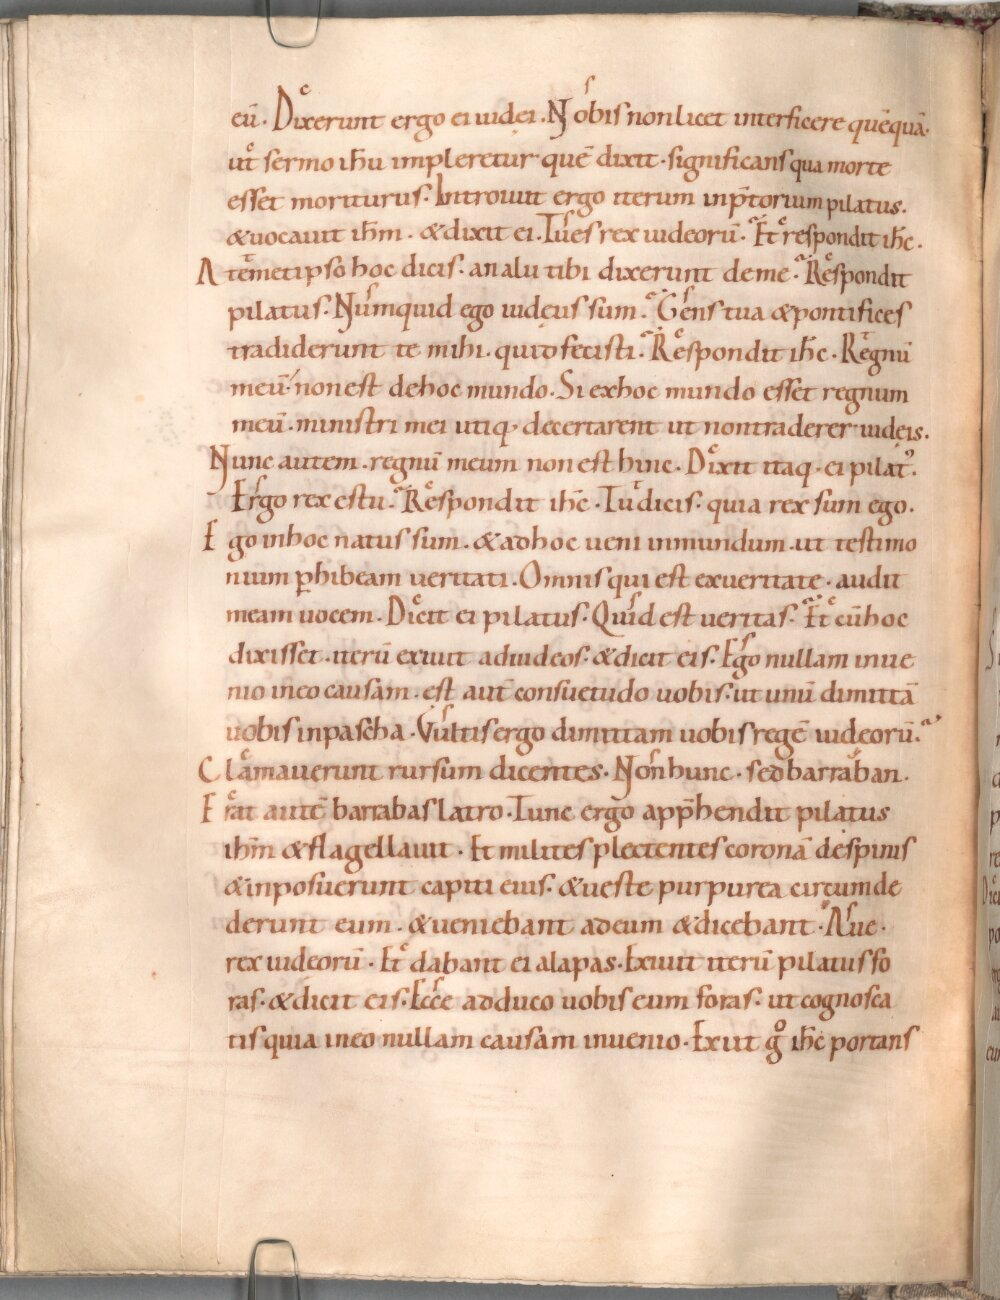 eū. Dixerunt ergo ei iudęi. Nobis non licet interficere quēquā.
ut sermo ihū impleretur quē dixit. significans qua morte
esset moriturus. Introiuit ergo iterum in p̄torium pilatus.
& uocauit ihm̄. & dixit ei. Tu es rex iudeorū. Et respondit ihc̄.
A temetipso hoc dicis. an alii tibi dixerunt de me. Respondit
pilatus. Numquid ego iudęus sum. Gens tua & pontifices
tradiderunt te mihi. quid fecisti. Respondit ihc̄. Regnū
meū. non est de hoc mundo. Si ex hoc mundo esset regnum
meū. ministri mei utiq; decertarent ut non traderer iudęis.
Nunc autem. regnū meum non est hinc. Dixit itaq; ei pilat᾿.
Ergo rex es tu. Respondit ihc̄. Tu dicis. quia rex sum ego.
Ego in hoc natus sum. & ad hoc ueni in mundum. ut testimo
nium p̱hibeam ueritati. Omnis qui est ex ueritate. audit
meam uocem. Dicit ei pilatus. Quid est ueritas. Et cū hoc
dixisset. iterū exiuit ad iudeos. & dicit eis. Ego nullam inue
nio in eo causam. est autē consuetudo uobis. ut unū dimittā
uobis in pascha. Vultis ergo dimittam uobis regē iudeorū.
Clamauerunt rursum dicentes. Non hunc. sed barraban.
Erat autē barrabas latro. Tunc ergo app̄hendit pilatus
ihm̄ & flagellauit. Et milites plectentes coronā de spinis
& inposuerunt capiti eius. & ueste purpurea circumde
derunt eum. & ueniebant ad eum & dicebant. Aue.
rex iudeorū. Et dabant ei alapas. Exiuit iterū pilatus fo
ras. & dicit eis. Ecce adduco uobis eum foras. ut cognosca
tis quia in eo nullam causam inuenio. Exiit gͦ ihc̄ portans